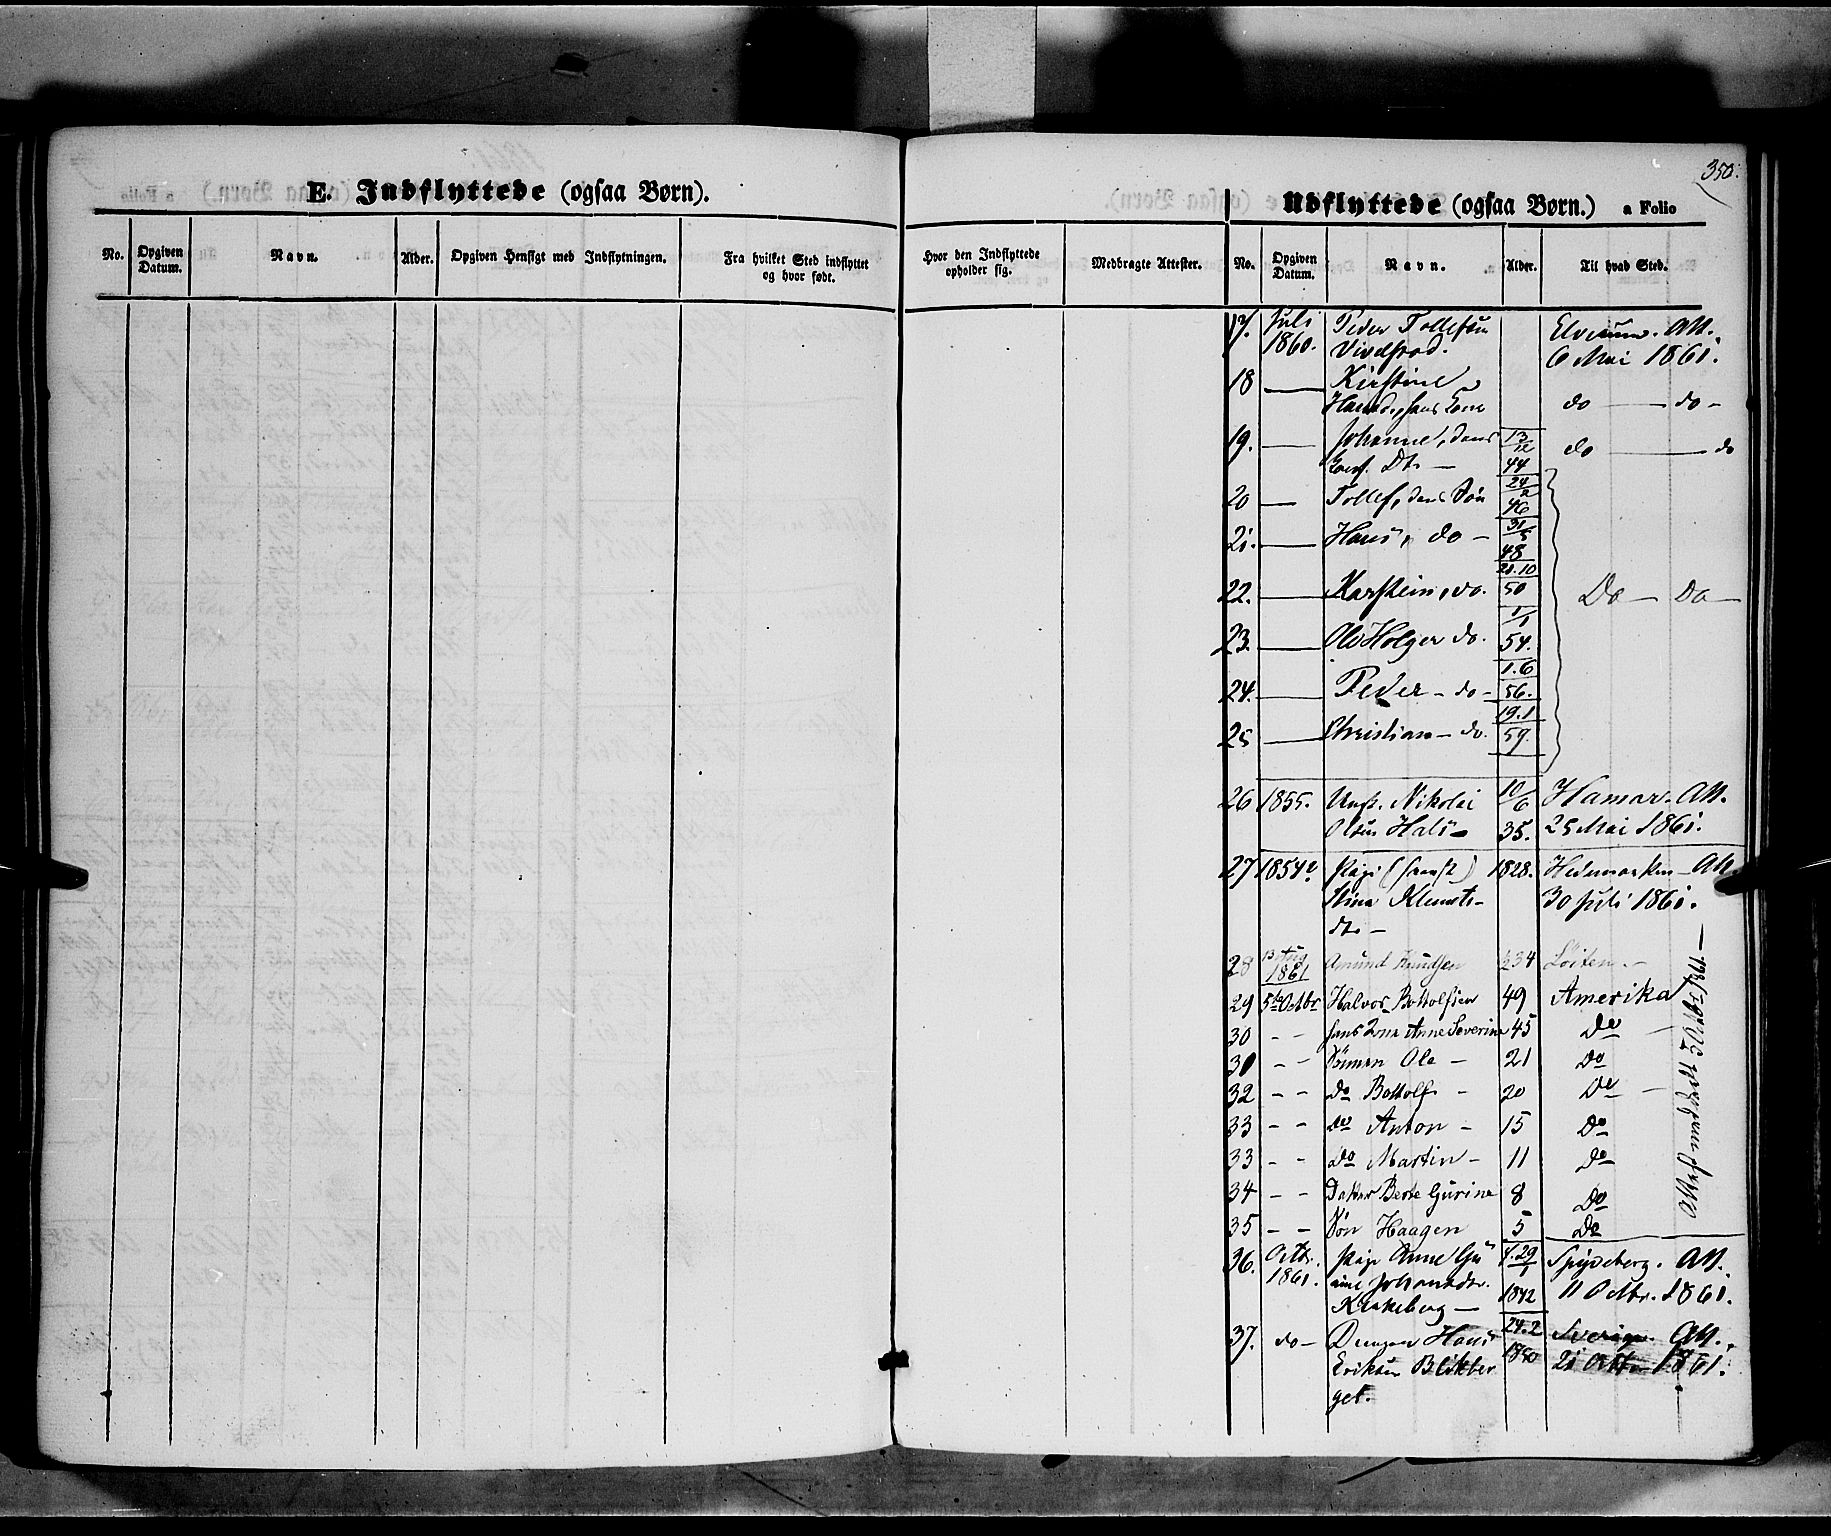 350.
E. Indflyttede (ogsaa Børn).
No. Opgiven Datum. Navn. Alder. Opgiven Hensigt med Indflytningen. Fra hvilket Sted indflyttet og hvor født. Hvor den Indflyttede opholder sig. Medbragte Attester.
Udflyttede (ogsaa Børn.) a Folio
No. Opgiven Datum. Navn. Alder. Til hvad Sted.
17. Juli Peder Tollefsen Elverum. Att.
1860. 6 Mai 1861.
18 — Kirstine
Hansdr, hans Kone do — do —
19. — Johanne, dens 13/12
Dtr — 44 do — do
20 — Tollef, dens Søn 24/2 46
21. — Hans, do — 31/5 48
22. — Karstein, do. 21.10 50 Do — Do —
23. — Ole Holger do. 1/1 54.
24. — Peder — do — 1.6 56.
25 — Christian — do. 19.1 59.
26 1855. Ungk. Nikolai 10/6 Hamar. Att.
Olsen Hals — 35. 25 Mai 1861.
27 1854 Pige (svensk) 1828. Hedemarken — Att.
Stina Klemets- 30 Juli 1861.
dtr —
28 13 Aug 1861 Amund Knudsen 34 Löiten. —
29 5te Octbr Halvor Bottolfsen 49 Amerika
30 - - hans Kone Anne Severine 45 Do —
31 - - Sönnen Ole — 21 Do
32 - - Do Bottolf — 20 Do —
33 - - Do Anton — 15 Do
33 - - Do Martin — 11 Do
34 - - Datter Berte Gurine 8 Do
35 - - Søn Haagen 5 Do
Attest meddeelt 5 Octbr 1861 —
36. Octbr. Pige Anne Gu- f. 29/1 Spydeberg. Att.
1861. rine Johansdtr. 1842 11 Octbr. 1861.
Krakeberg —
37. do — Drengen Hans 24.2 Sverige. Att.
Eriksen Blikber 1850 21 Octbr 1861.
get.